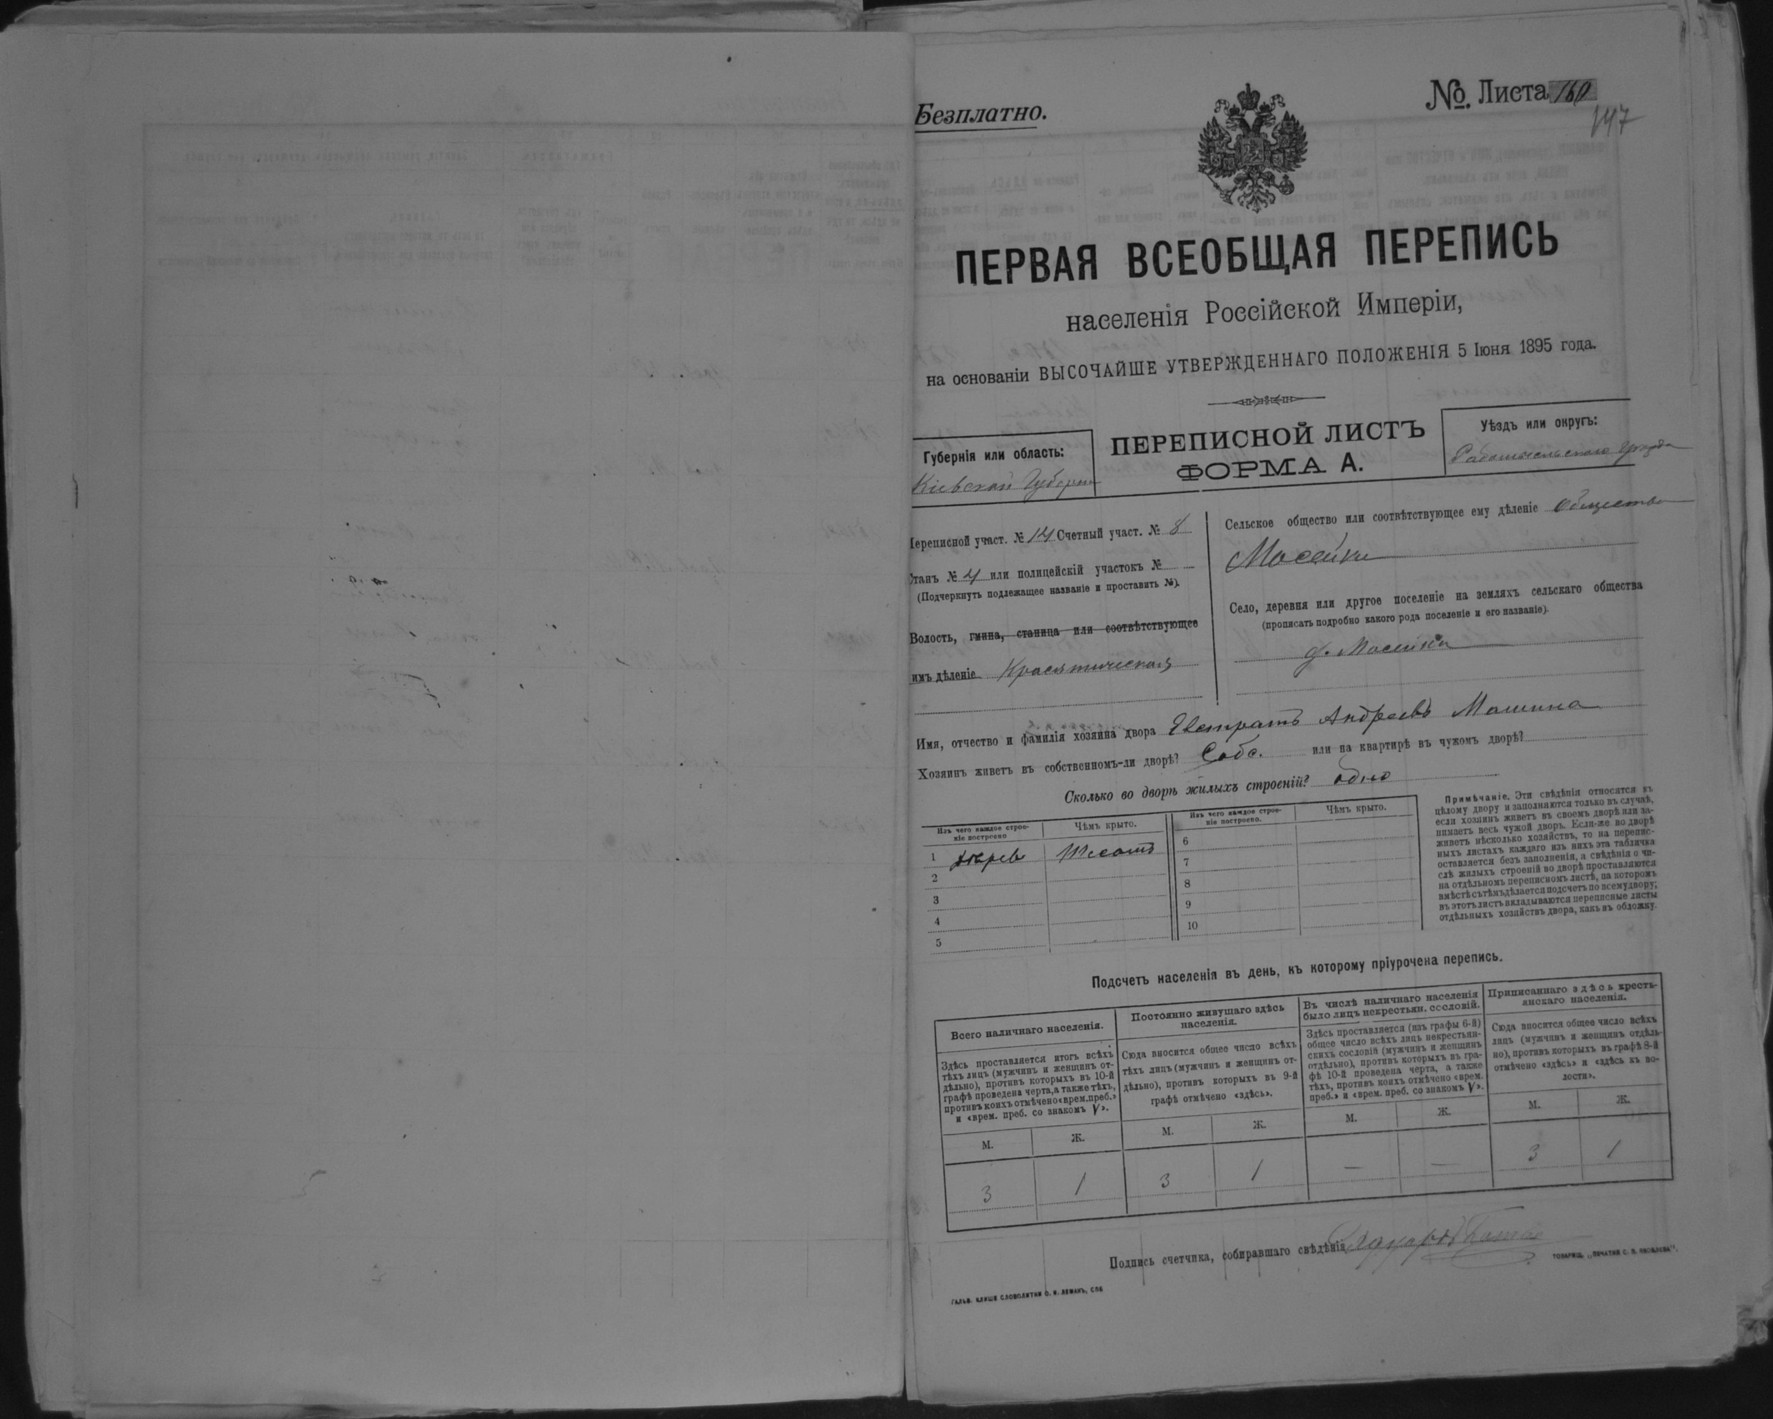 Безплатно.
№ Листа 160
147
ПЕРВАЯ ВСЕОБЩАЯ ПЕРЕПИСЬ
населенія Россійской Имперіи,
на основаніи ВЫСОЧАЙШЕ УТВЕРЖДЕННАГО ПОЛОЖЕНІЯ 5 Іюня 1895 года.
ПЕРЕПИСНОЙ ЛИСТЪ
ФОРМА А.
Губернія или область:
Кіевской Губерн
Уѣздъ или округъ:
Радомысльскаго уѣзда
Переписной участ. № 14 Счетный участ. № 8
Станъ № 4 или полицейскій участокъ № —
(Подчеркнуть подлежащее названіе и проставить №).
Волость, гмина, станица или соотвѣтствующее
имъ дѣленіе Красятическая
Сельское общество или соотвѣтствующее ему дѣленіе Общество
Масейки
Село, деревня или другое поселеніе на земляхъ сельскаго общества
(прописать подробно какого рода поселеніе и его названіе).
д. Масейки
Имя, отчество и фамилія хозяина двора Евстратъ Андреевъ Машина
Хозяинъ живетъ въ собственномъ-ли дворѣ? Собс. или на квартирѣ въ чужомъ дворѣ?
Сколько во дворѣ жилыхъ строеній? одно
Изъ чего каждое строе-
ніе построено
Чѣмъ крыто.
Изъ чего каждое строе-
ніе построено.
Чѣмъ крыто.
1 дерев
2
3
4
5
6
7
8
9
10
Примѣчаніе. Эти свѣдѣнія относятся къ
цѣлому двору и заполняются только въ случаѣ,
если хозяинъ живетъ въ своемъ дворѣ или за-
нимаетъ весь чужой дворъ. Если-же во дворѣ
живетъ нѣсколько хозяйствъ, то на перепис-
ныхъ листахъ каждаго изъ нихъ эта табличка
оставляется безъ заполненія, а свѣдѣнія о чи-
слѣ жилыхъ строеній во дворѣ проставляются
на отдѣльномъ переписномъ листѣ, на которомъ
вмѣстѣ съ тѣмъ дѣлается подсчетъ по всему двору;
въ этотъ листъ вкладываются переписные листы
отдѣльныхъ хозяйствъ двора, какъ въ обложку.
Подсчетъ населенія въ день, къ которому пріурочена перепись.
Всего наличнаго населенія.
Здѣсь проставляется итогъ всѣхъ
тѣхъ лицъ (мужчинъ и женщинъ от-
дѣльно), противъ которыхъ въ 10-й
графѣ проведена черта, а также тѣхъ,
противъ коихъ отмѣчено «врем. преб.»
и «врем. преб. со знакомъ V».
М. Ж.
3 1
Постоянно живущаго здѣсь
населенія.
Сюда вносится общее число всѣхъ
тѣхъ лицъ (мужчинъ и женщинъ от-
дѣльно), противъ которыхъ въ 9-й
графѣ отмѣчено «здѣсь».
М. Ж.
3 1
Въ числѣ наличнаго населенія
было лицъ некрестьян. сословій.
Здѣсь проставляется (изъ графы 6-й)
общее число всѣхъ лицъ некрестьян-
скихъ сословій (мужчинъ и женщинъ
отдѣльно), противъ которыхъ въ гра-
фѣ 10-й проведена черта, а также
тѣхъ, противъ коихъ отмѣчено «врем.
преб.» и «врем. преб. со знакомъ V».
М. Ж.
— —
Приписаннаго здѣсь кресть-
янскаго населенія.
Сюда вносится общее число всѣхъ
лицъ (мужчинъ и женщинъ отдѣль-
но), противъ которыхъ въ графѣ 8-й
отмѣчено «здѣсь» и «здѣсь въ во-
лости».
М. Ж.
3 1
Подпись счетчика, собиравшаго свѣдѣнія
ГАЛЬВ. КЛИШЕ СЛОВОЛИТНИ О. И. ЛЕМАНЪ, СПБ
ТОВАРИЩ. „ПЕЧАТНЯ С. П. ЯКОВЛЕВА“.